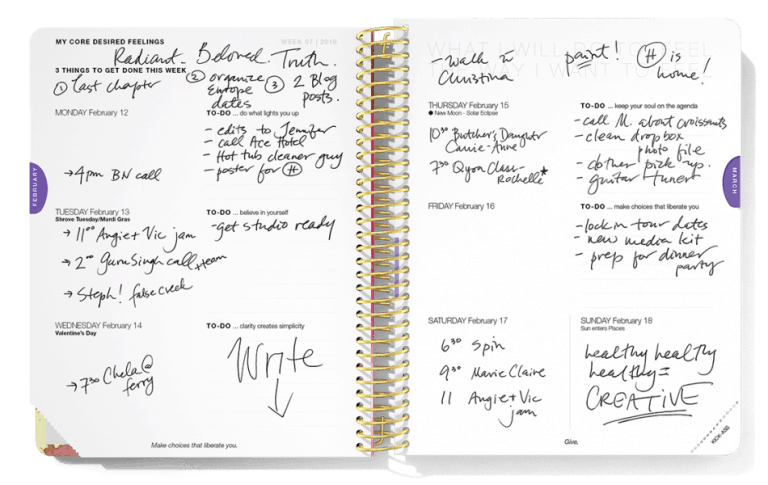 MY CORE DESIRED FEELINGS
WEEK 07 | 2018
Radiant. Beloved. Truth.
3 THINGS TO GET DONE THIS WEEK
① last chapter
② organize Europe dates
③ 2 Blog posts.
MONDAY February 12
→ 4pm BN call
TO-DO ... do what lights you up
- edits to Jennifer
- call Ace Hotel
- Hot tub cleaner guy
- poster for Ⓗ
TUESDAY February 13
Shrove Tuesday/Mardi Gras
→ 11⁰⁰ Angie + Vic jam
→ 2⁰⁰ Guru Singh call + team
→ Steph! false creek
TO-DO ... believe in yourself
- get studio ready
WEDNESDAY February 14
Valentine's Day
→ 7³⁰ Chela @
ferry
TO-DO ... clarity creates simplicity
Write
↓
Make choices that liberate you.
FEBRUARY
WHAT I WILL DO TO FEEL
THE WAY I WANT TO FEEL
- walk
Christina
paint!
Ⓗ is
home!
THURSDAY February 15
● New Moon - Solar Eclipse
10³⁰ Butcher's Daughter
Carrie-Anne
7³⁰ Class -
Rochelle*
TO-DO ... keep your soul on the agenda
- call M. about croissants
- clean dropbox
photo file
- clothes pick up.
- guitar tuner
FRIDAY February 16
TO-DO ... make choices that liberate you
- lock in tour dates
- new media kit
- prep for dinner
party
SATURDAY February 17
6³⁰ Spin
9³⁰ Marie Claire
11 Angie + Vic
jam
SUNDAY February 18
Sun enters Pisces
healthy healthy
healthy =
CREATIVE
Give.
KICK-ASS
MARCH